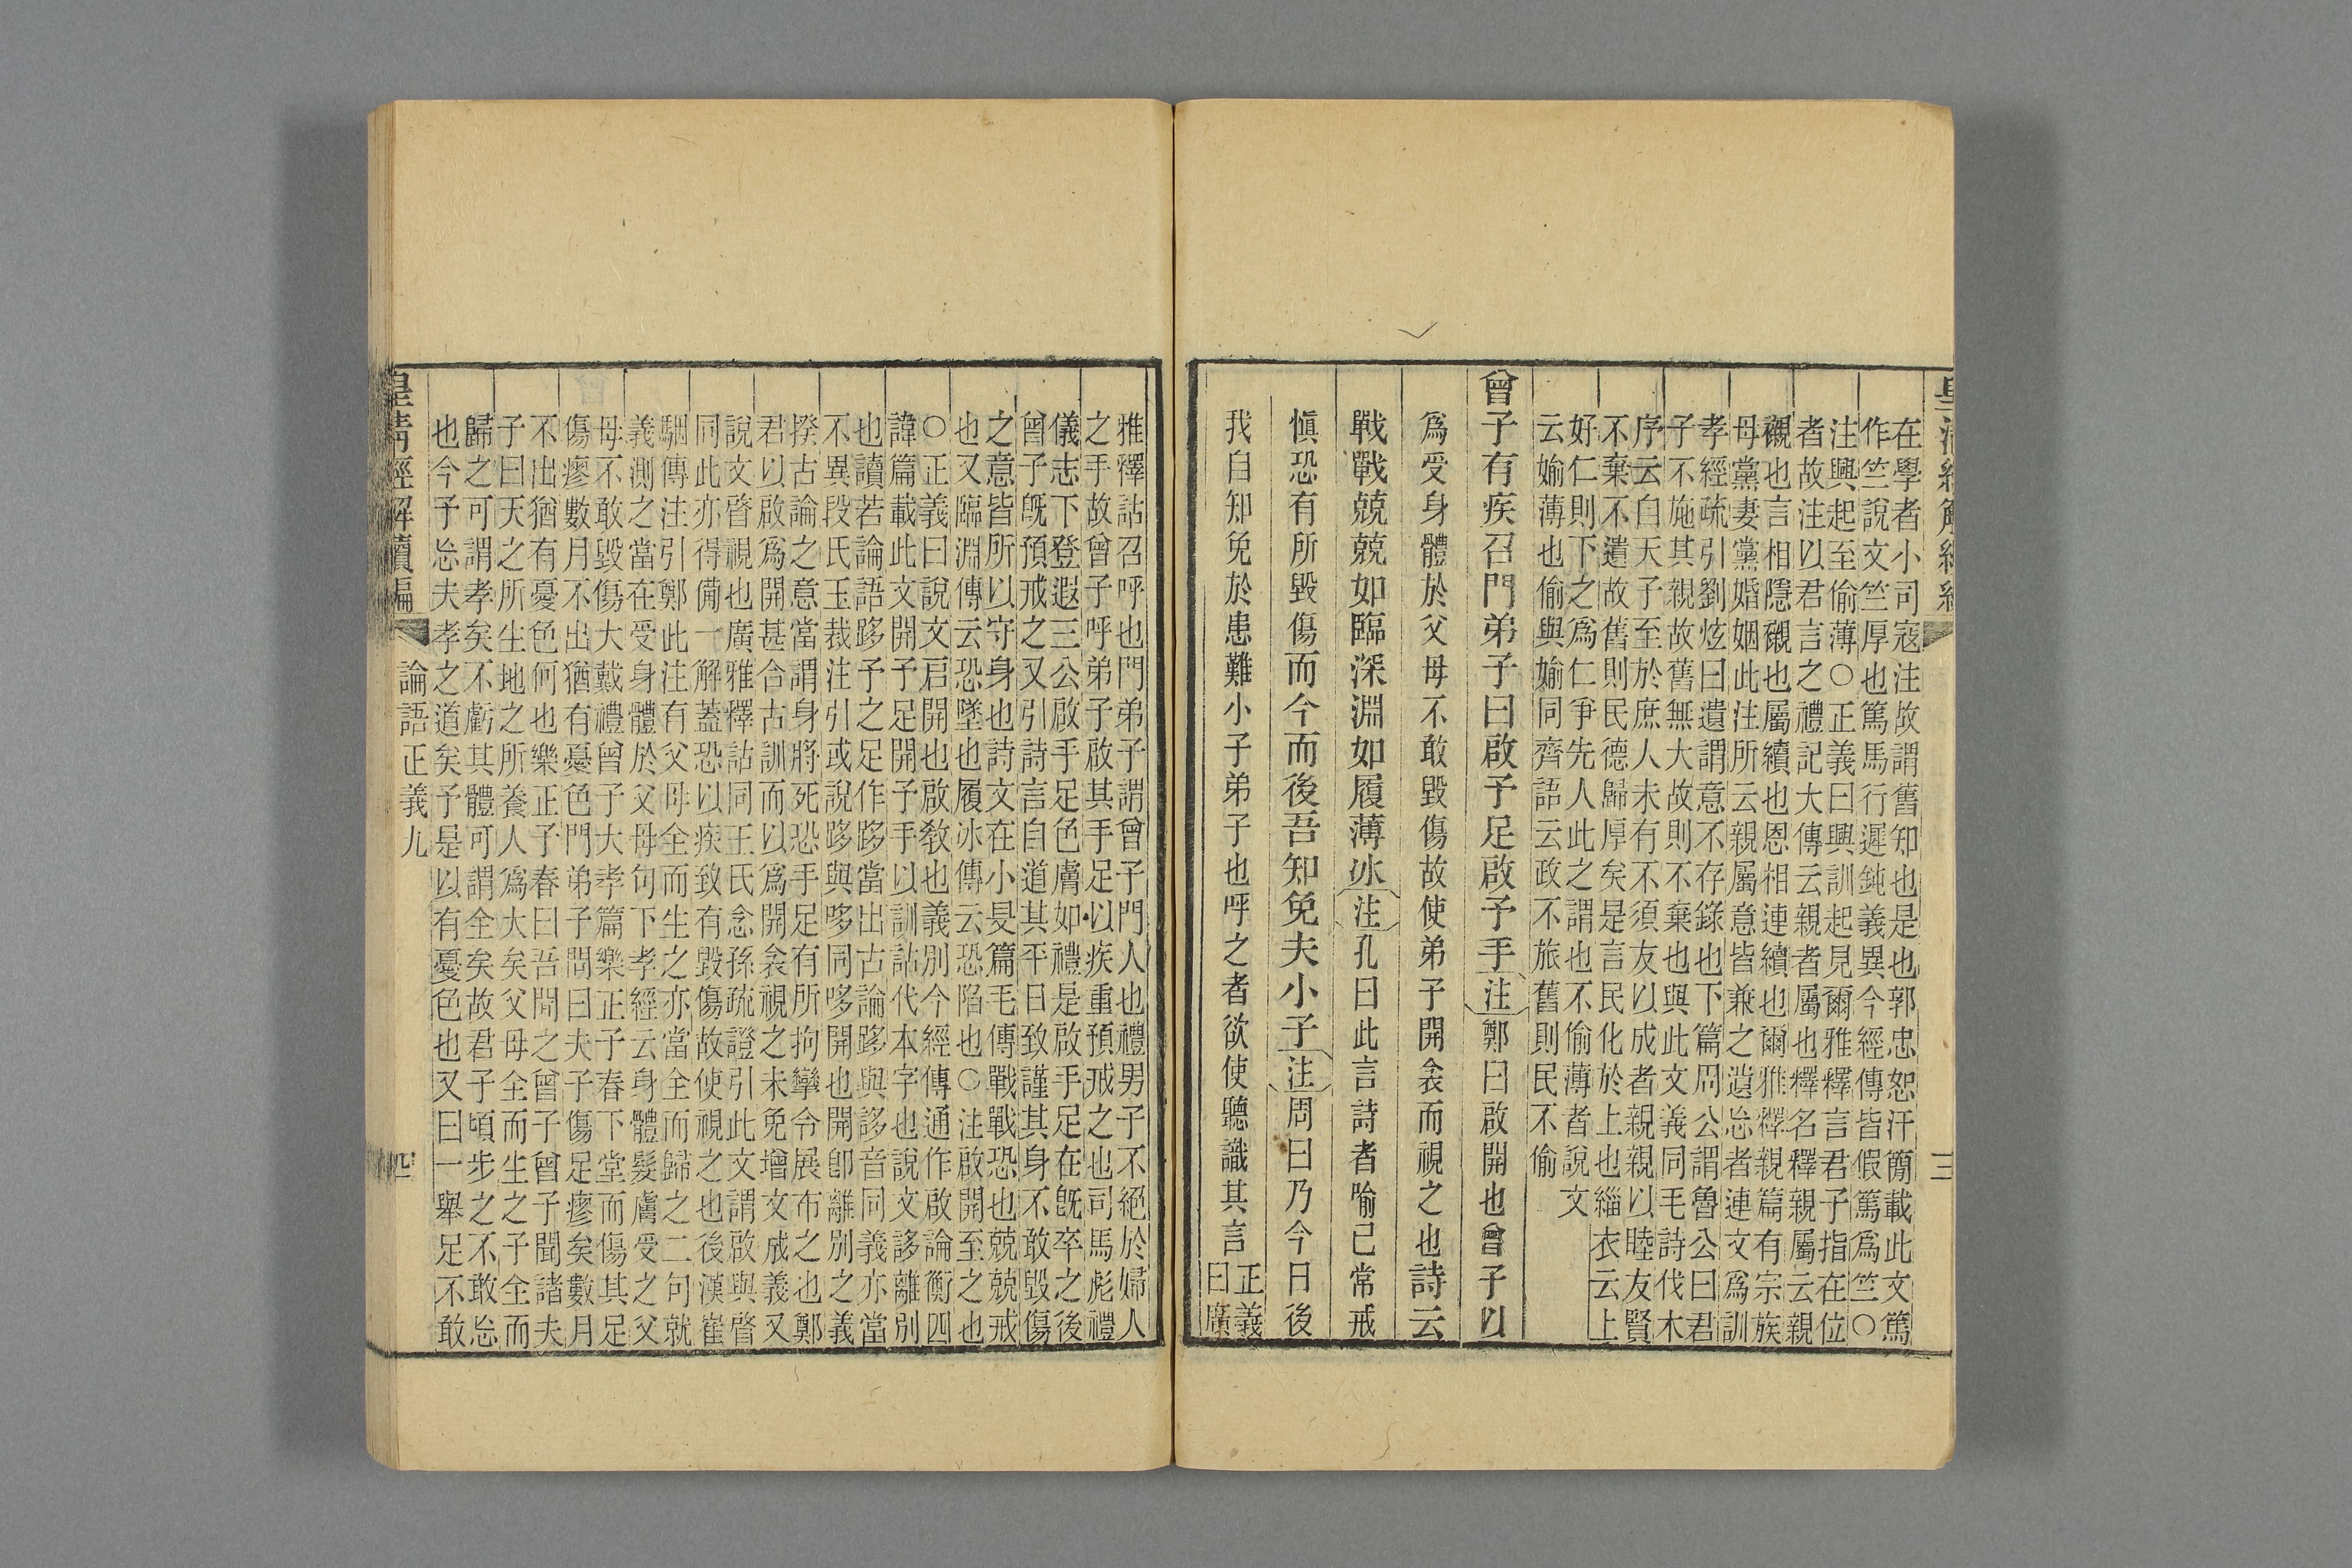 皇清經解續編
三
在學者小司寇注故謂舊知也是也郭忠恕汗簡載此文篤
作竺說文竺厚也篤馬行遲鈍義異今經傳皆假篤爲竺○
注興起至偷薄○正義曰興訓起見爾雅釋言君子指在位
者故注以君言之禮記大傳云親者屬也釋名釋親屬云親
襯也言相隱襯也屬續也恩相連續也爾雅釋親篇有宗族
母黨妻黨婚姻此注所云親屬意皆兼之遺忘者連文爲訓
孝經疏引劉炫曰遺謂意不存錄也下篇周公謂魯公曰君
子不施其親故舊無大故則不棄也與此文義同毛詩伐木
序云自天子至於庶人未有不須友以成者親親以睦友賢
不棄不遺故舊則民德歸厚矣是言民化於上也緇衣云上
好仁則下之爲仁爭先人此之謂也不偷薄者說文
云媮薄也偷與媮同齊語云政不旅舊則民不偷
曾子有疾召門弟子曰啟予足啟予手注鄭曰啟開也曾子以
爲受身體於父母不敢毀傷故使弟子開衾而視之也詩云
戰戰兢兢如臨深淵如履薄冰注孔曰此言詩者喻己常戒
愼恐有所毀傷而今而後吾知免夫小子注周曰乃今日後
我自知免於患難小子弟子也呼之者欲使聽識其言
正義
曰廣
雅釋詁召呼也門弟子謂曾子門人也禮男子不絕於婦人
之手故曾子呼弟子啟其手足以疾重預戒之也司馬彪禮
儀志下登遐三公啟手足色膚如禮是啟手足在旣卒之後
曾子旣預戒之又引詩言自道其平日致謹其身不敢毀傷
之意皆所以守身也詩文在小旻篇毛傳戰戰恐也兢兢戒
也又臨淵傳云恐墜也履冰傳云恐陷也○注啟開至之也
○正義曰說文启開也啟敎也義別今經傳通作啟論衡四
諱篇載此文開予足開予手以訓詁代本字也說文誃離別
也讀若論語跢予之足作跢當出古論跢與誃音同義亦當
不異段氏玉裁注引或說跢與哆同哆開也開卽離別之義
揆古論之意當謂身將死恐手足有所拘攣令展布之也鄭
君以啟爲開甚合古訓而以爲開衾視之未免增文成義又
說文晵視也廣雅釋詁同王氏念孫疏證引此文謂啟與晵
同此亦得備一解蓋恐以疾致有毀傷故使視之也後漢崔
駰傳注引鄭此注有父母全而生之亦當全而歸之二句就
義測之當在受身體於父母句下孝經云身體髮膚受之父
母不敢毀傷大戴禮曾子大孝篇樂正子春下堂而傷其足
傷瘳數月不出猶有憂色門弟子問曰夫子傷足瘳矣數月
不出猶有憂色何也樂正子春曰吾聞之曾子曾子聞諸夫
子曰天之所生地之所養人爲大矣父母全而生之子全而
歸之可謂孝矣不虧其體可謂全矣故君子頃步之不敢忘
也今予忘夫孝之道矣予是以有憂色也又曰一舉足不敢
皇淸經解續編
論語正義九
四